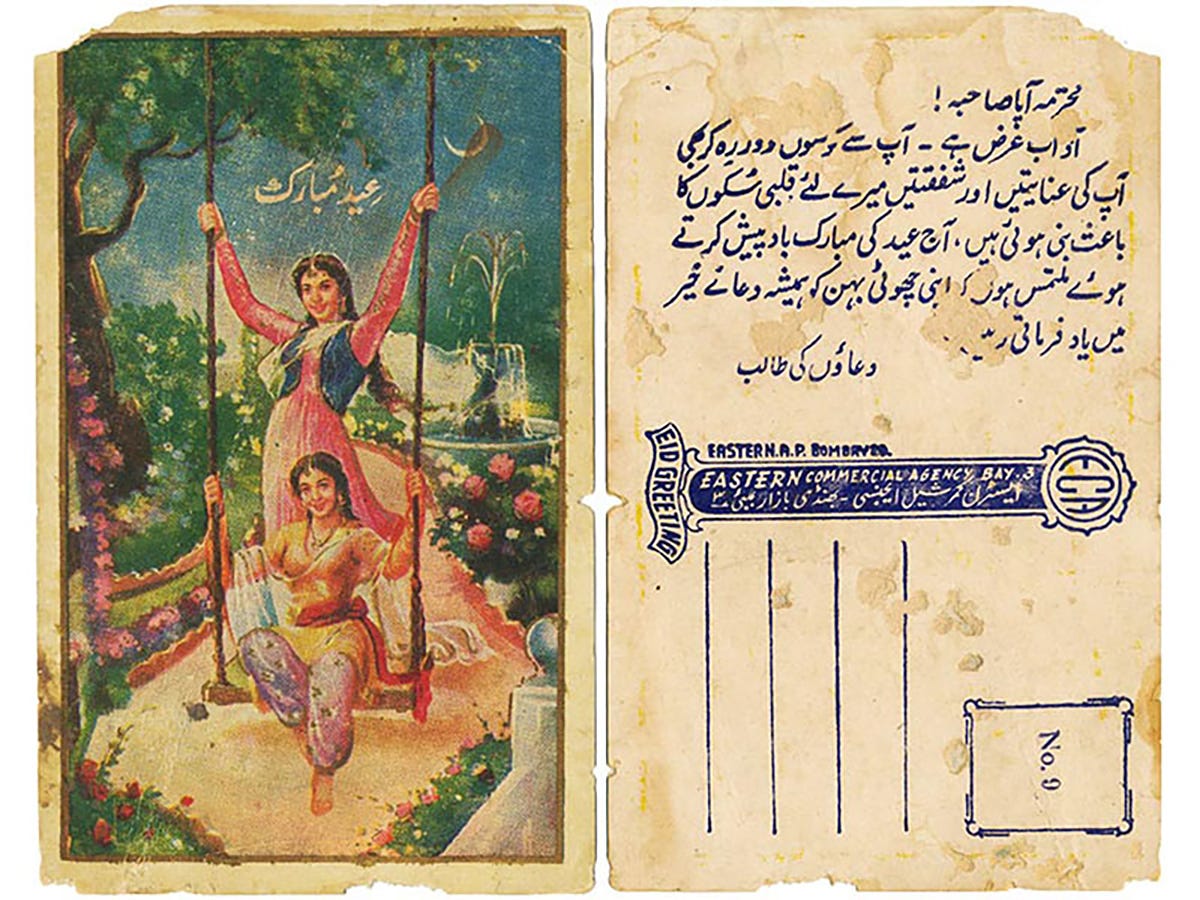 عید مُبارک
محترمہ آپا صاحبہ !
آداب عرض ہے - آپ سے برسوں دور رہ کر بھی
آپ کی عنایتیں اور شفقتیں میرے لئے قلبی سُکوں کا
باعث بنی ہوئی ہیں، آج عید کی مبارک باد پیش کرتے
ہوئے ملتمس ہوں کہ اپنی چھوٹی بہن کو ہمیشہ دعائے خیر
میں یاد فرماتی
دعاؤں کی طالب
EID GREETING
EASTERN.A.P. BOMBAY
EASTERN COMMERCIAL AGENCY BAY.3
ایسٹرن کمرشیل ایجنسی - بھنڈی بازار بمبئی ۳
ECA
No. 9